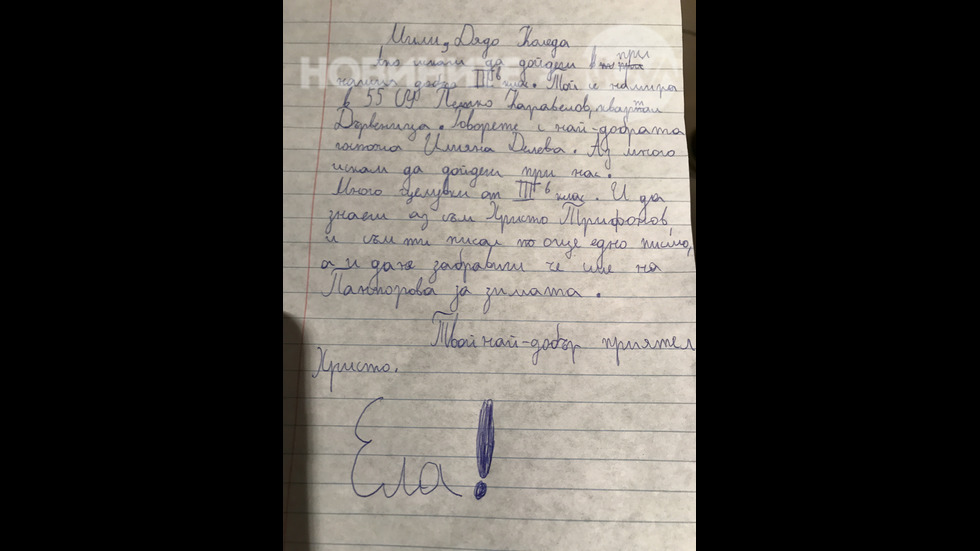 Мили, Дядо Коледа
искам да дойдеш в при
нашия III б клас. Той се намира
в 55 СУ Петко Каравелов, квартал
Дървеница. Говорете с най-добрата
госпожа Илияна Делева. Аз много
искам да дойдеш при нас.
Много целувки от III б клас. И да
знаеш аз съм Христо Трифонов,
и съм ти писал по още едно писмо,
а и даже забравили че име на
за зимата.
Твой най-добър приятел
Христо.
Ела!
НОВИНИТЕ